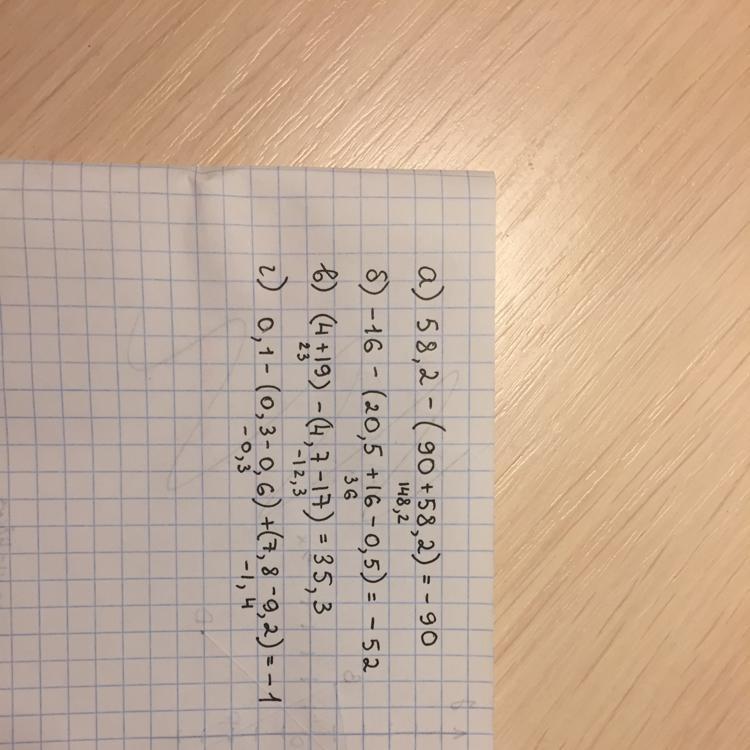 а) 58,2 - (90 + 58,2) = -90
148,2
б) -16 - (20,5 + 16 - 0,5) = -52
36
в) (4 + 19) - (4,7 - 17) = 35,3
23 -12,3
г) 0,1 - (0,3 - 0,6) + (7,8 - 9,2) = -1
-0,3 -1,4